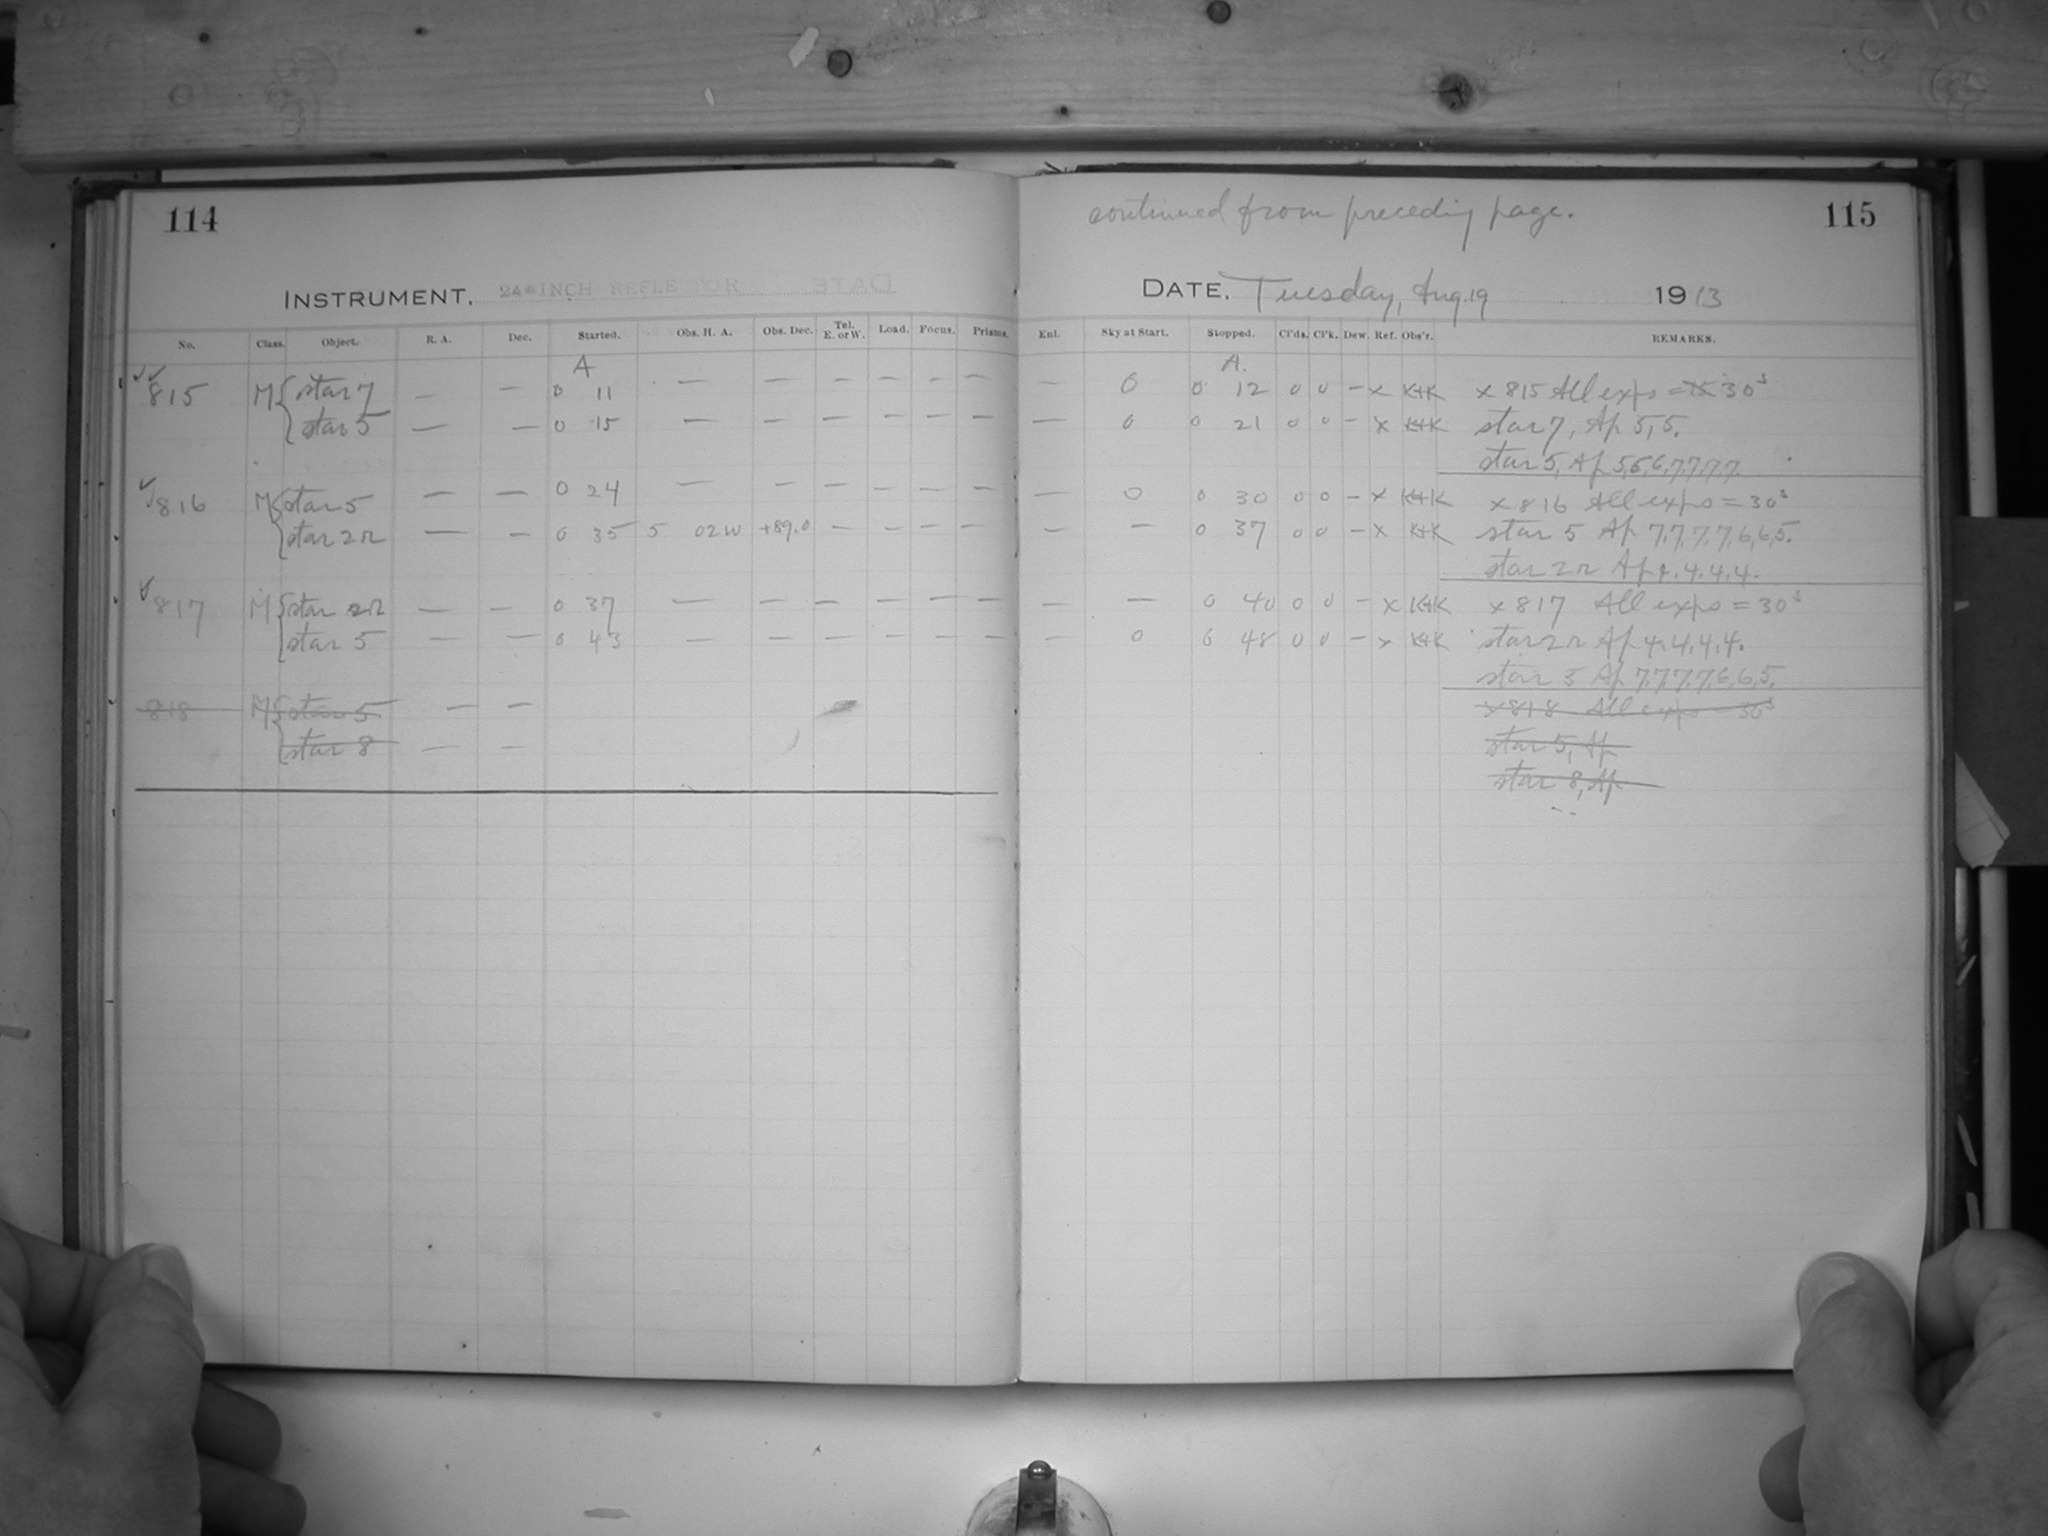 114
INSTRUMENT. 24-INCH REFLECTOR
No. Class. Object. R. A. Dec. Started. Obs. H. A. Obs. Dec. Tel. E. or W. Load. Focus. Prisms.
A
815 M star 7 — — 0 11 — — — — — —
star 5 — — 0 15 — — — — — —
816 M star 5 — — 0 24 — — — — — —
star 2r — — 0 35 5 02 W +89.0 — — — —
817 M star 2r — — 0 37 — — — — — —
star 5 — — 0 43 — — — — — —
818 M star 5 — —
star 8 — —
continued from preceding page.
115
DATE. Tuesday, Aug. 19 1913
Enl. Sky at Start. Stopped. Cl'ds. Cl'k. Dew. Ref. Obs'r. REMARKS.
A.
— 0 0 12 0 0 — x K+K x 815 All exps = 15 30s
— 0 0 21 0 0 — x K+K star 7, Ap 5,5.
star 5, Ap 5,6,6,7,7,7,7.
— 0 0 30 0 0 — x K+K x 816 All exps = 30s
— — 0 37 0 0 — x K+K star 5 Ap 7,7,7,7,6,6,5.
star 2r Ap 4.4.4.4.
— — 0 40 0 0 — x K+K x 817 All exps = 30s
— 0 0 48 0 0 — x K+K star 2r Ap 4.4.4.4.
star 5 Ap 7,7,7,7,6,6,5.
x 818 All exps = 30s
star 5, Ap
star 8, Ap